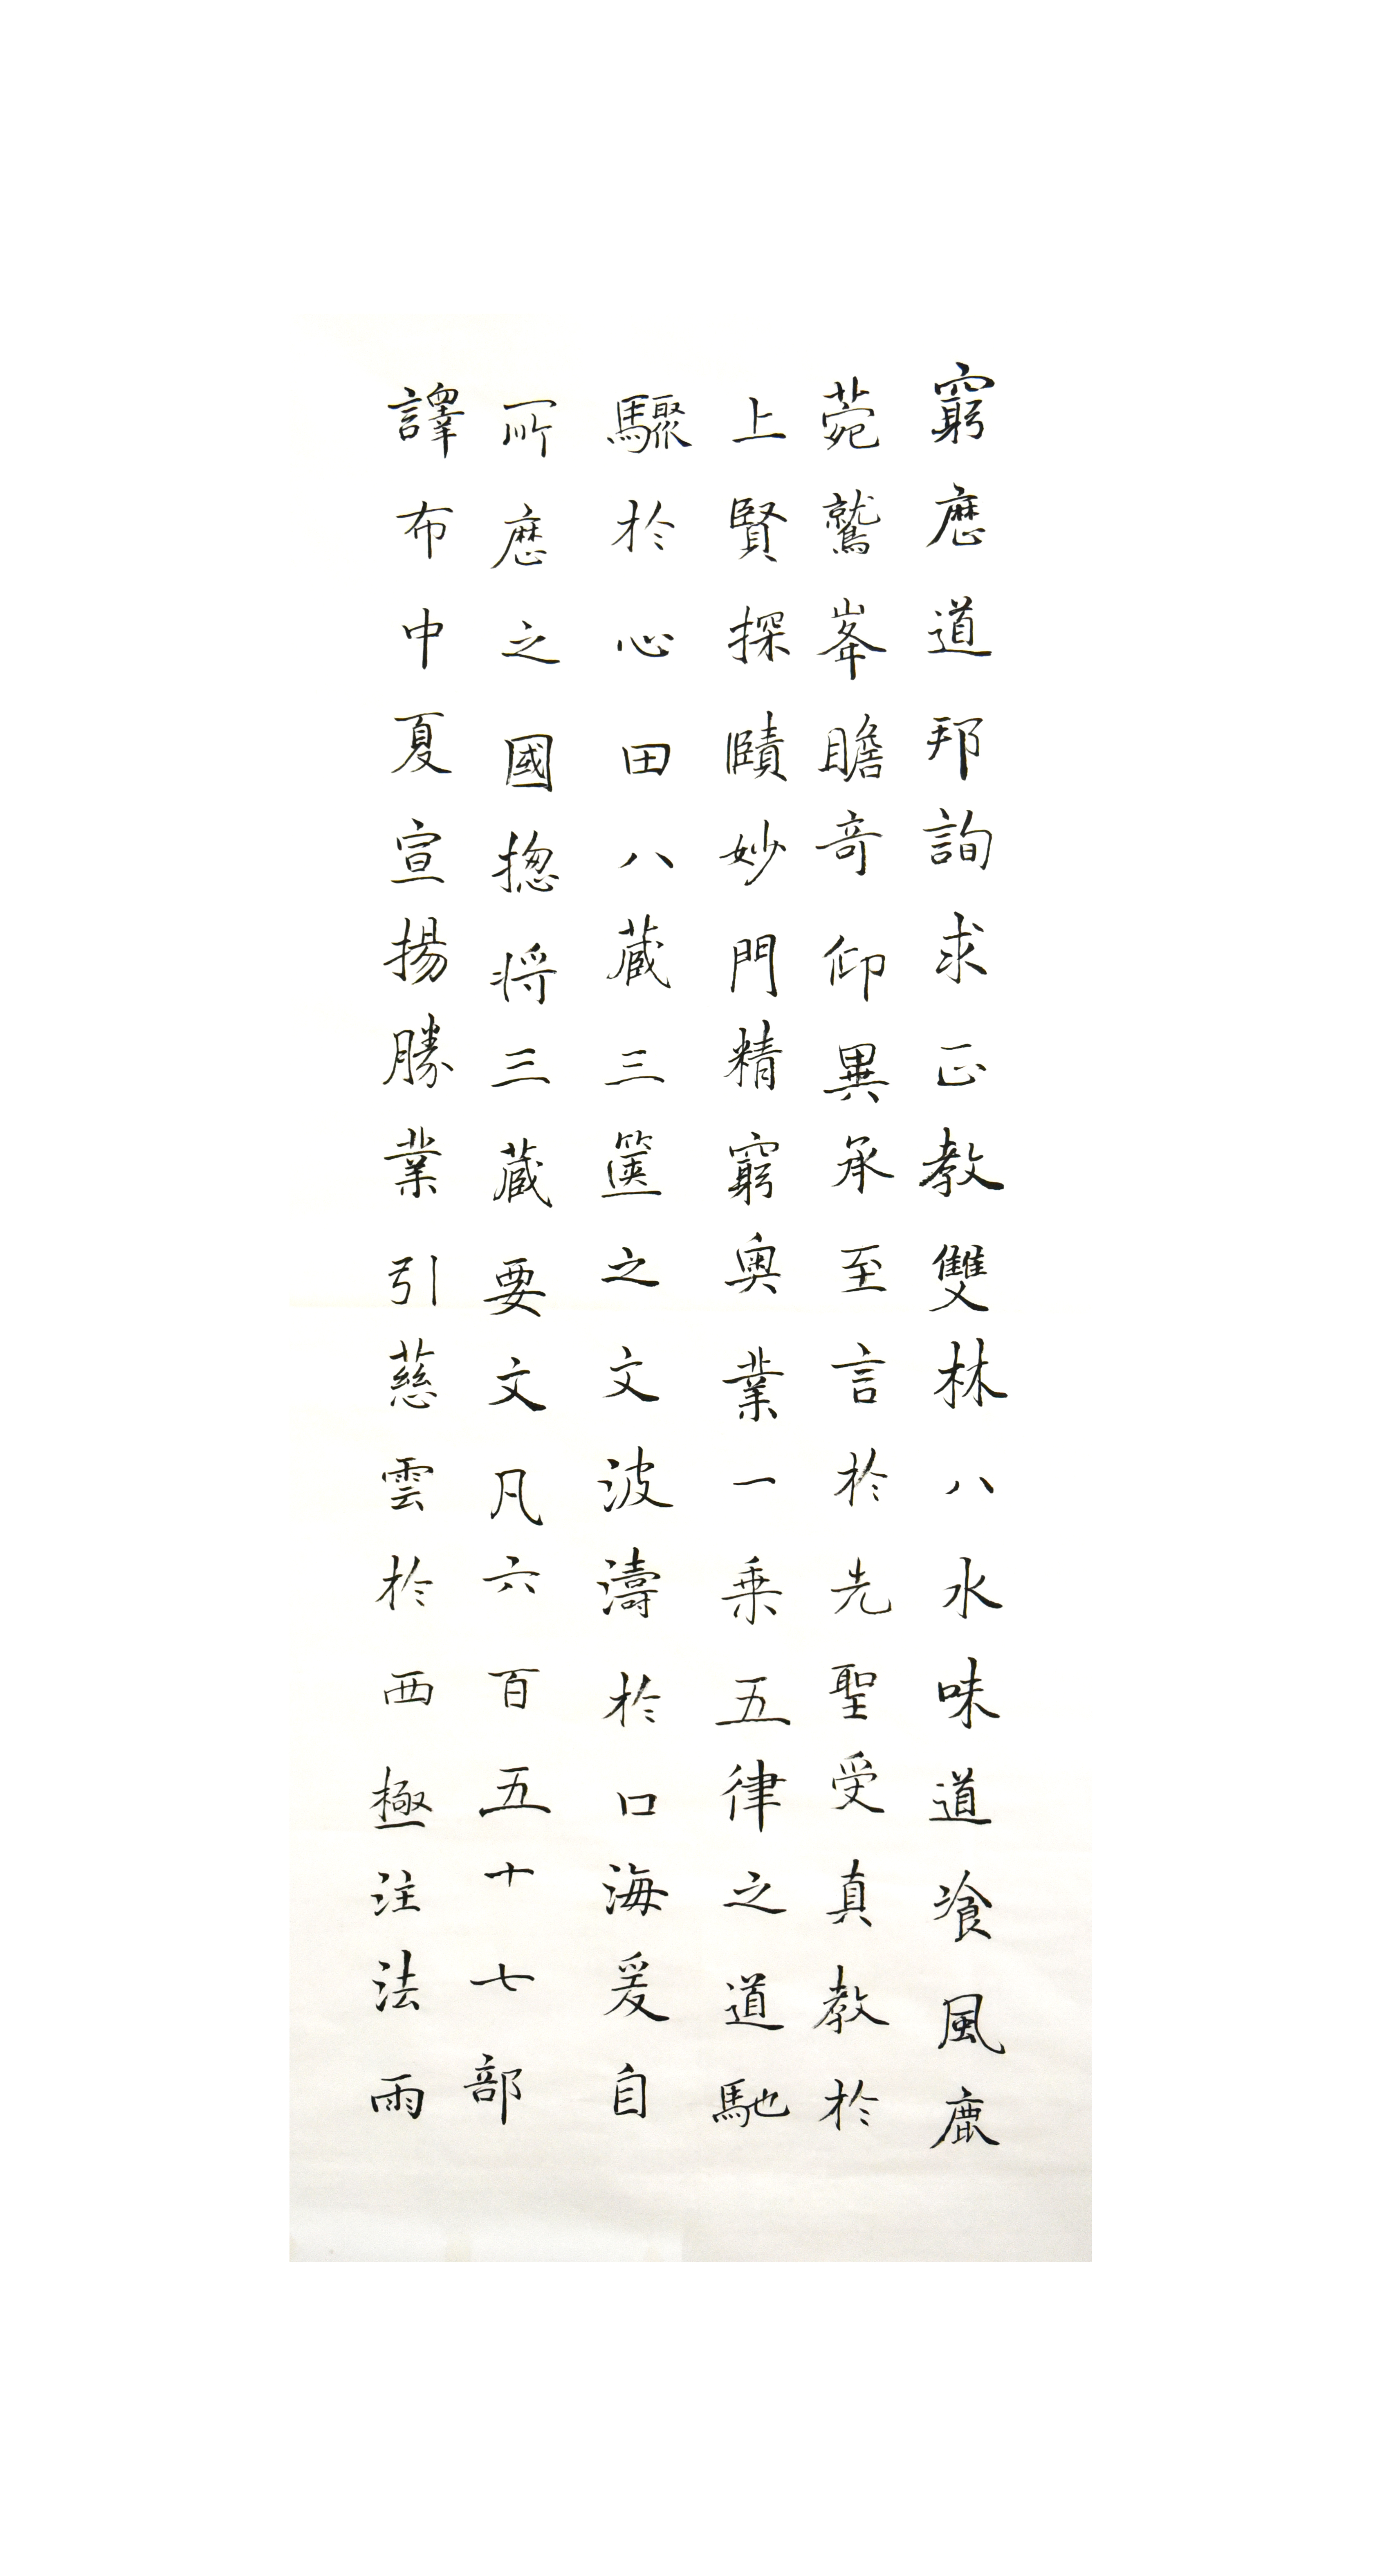 窮歷道邦詢求正教雙林八水味道飡風鹿
菀鷲峯瞻奇仰異承至言於先聖受真教於
上賢探賾妙門精窮奧業一乗五律之道馳
驟於心田八蔵三篋之文波濤於口海爰自
所歷之國揔将三蔵要文凡六百五十七部
譯布中夏宣揚勝業引慈雲於西極注法雨